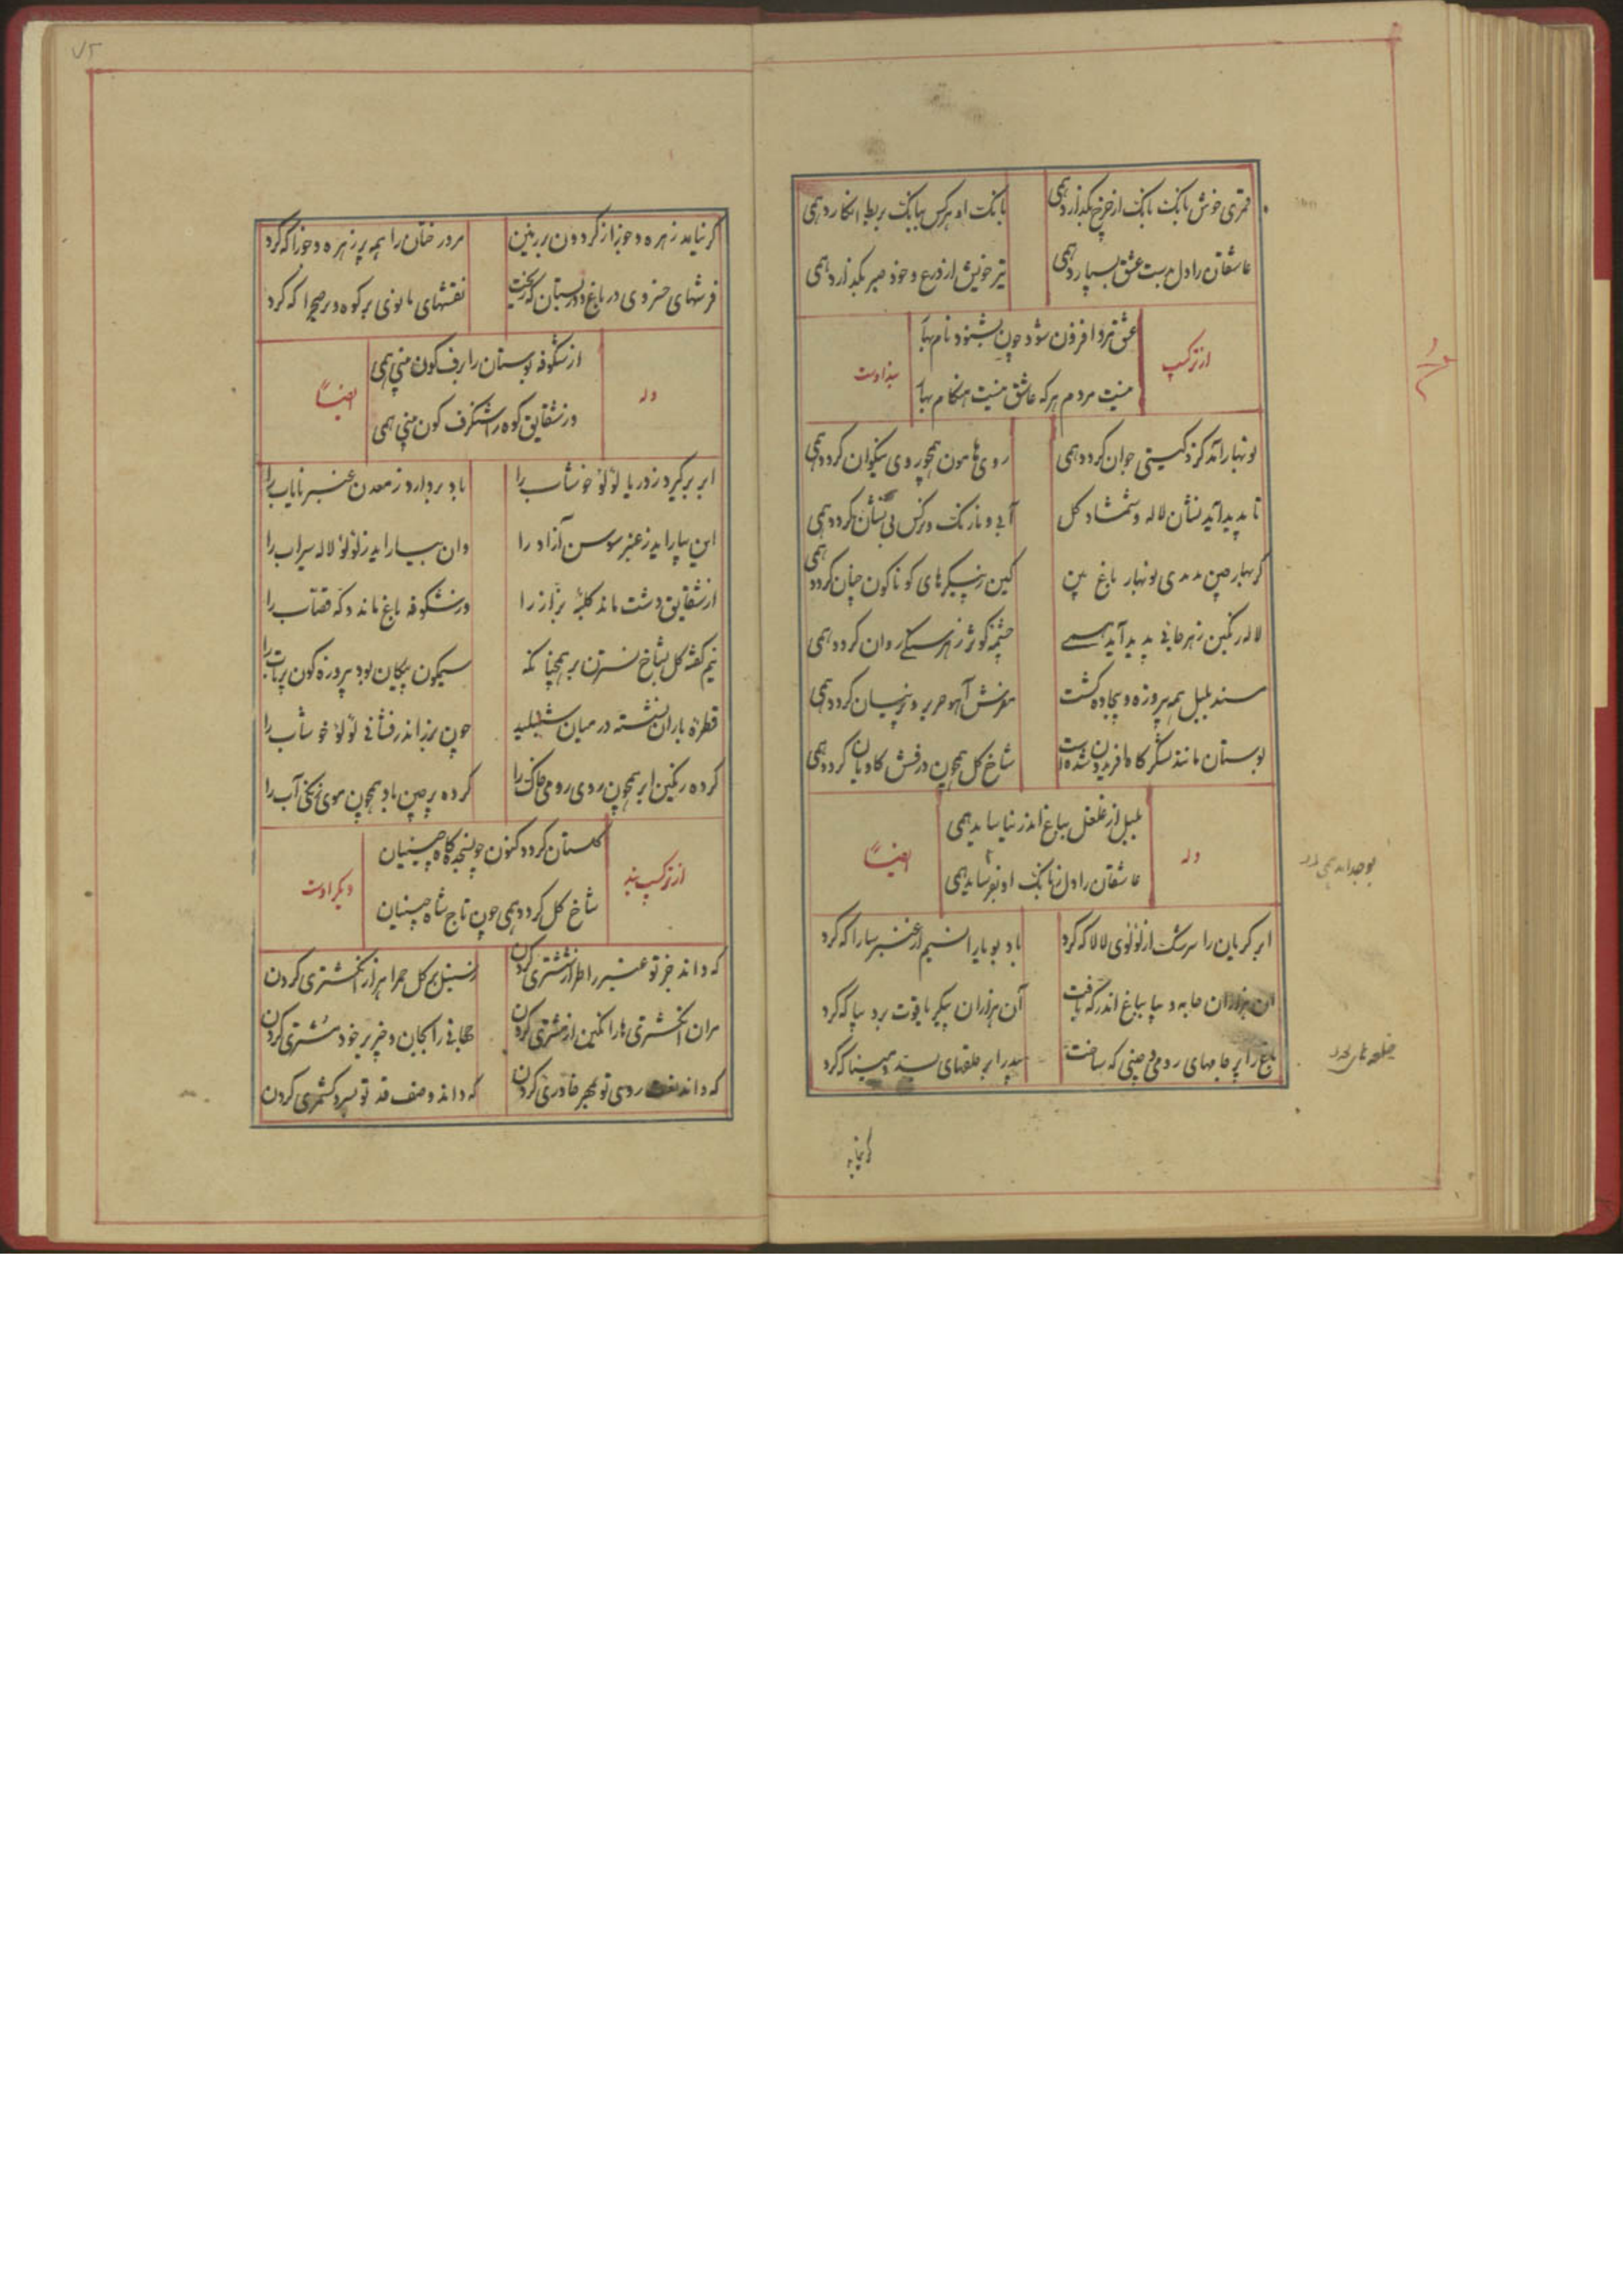 قمری خوش بانک بانک از چرخ بکذارد همی
بانک او هرکس ببانک بربط انکارد همی
عاشقان را دل بدست عشق بسپارد همی
تیر خویش از درع و خود صبر بکذارد همی
از ترکیب
عشق مردم افزون شود چون بشنود نام بهار
نیست مردم هرکه عاشق نیست هنکام بهار
بند اوست
نوبهار آمد کزو کیتی جوان کردد همی
روی هامون همچو روی نیکوان کردد همی
تا پدید آید نشان لاله و شمشاد و کل
آبی و نارنک و نرکس بی نشان کردد همی
کر بهار چین ندیدی نوبهار باغ بین
کین ز پیکرهای کوناکون چنان کردد همی
لاله رنکین ز هر جانی پدید آید همی
چشمه کوثر ز هر سنکی روان کردد همی
مسند بلبل همه پیروزه و بیجاده کشت
مفرش آهو حریر و پرنیان کردد همی
بوستان مانند لشکرکاه افریدون شده است
شاخ کل همچون درفش کاویان کردد همی
وله
بلبل از غلغل بباغ اندر نیاساید همی
عاشقان را دل ز بانک او بفرساید همی
ایضاً
ابر کریان را سرشک از لؤلؤی لالا که کرد
باد پویا را نسیم از عنبر سارا که کرد
آن هزاران جامه دیبا بباغ اندر که بافت
آن هزاران پیکر یاقوت بر دیبا که کرد
باغ را پر جامهای رومی و چینی که ساخت
بید را پر حلقهای بسد و مینا که کرد
کر نیامد
۷۵
کر نیامد زهره و جوزا ز کردون بر زمین
مر درختان را همه پر زهره و جوزا که کرد
فرشهای خسروی در باغ و در بستان که ریخت
نقشهای مانوی بر کوه و بر صحرا که کرد
وله
از شکوفه بوستان را برف کون بینی همی
وز شقایق کوه را شنکرف کون بینی همی
ایضاً
ابر برکیرد ز دریا لؤلؤ خوشاب را
باد بردارد ز معدن عنبر نایاب را
این بیاراید ز عنبر سوسن آزاد را
وان بیاراید ز لؤلؤ لاله سیراب را
از شقایق دشت ماند کلبه بزاز را
وز شکوفه باغ ماند دکه قصاب را
نیم کفته کل بشاخ نسترن بر همچنانکه
سیمکون پیکان بود پیروزه کون پرتاب را
قطره باران نشسته در میان شنبلید
چون بزر اندر نشانی لؤلؤ خوشاب را
کرده رنکین ابر همچون روی رومی خاک را
کرده پرچین باد همچون موی زنکی آب را
از ترکیب بند
کلستان کردد کنون چون سجده کاه چینیان
شاخ کل کردد همی چون تاج شاه چینیان
دیکر اوست
که داند جز تو عنبر را طراز ششتری کردن
ز سنبل بر کل حمرا هزار انکشتری کردن
مران انکشتری ها را نکین از مشتری کردن
جهانی را بجان و چیز بر خود مشتری کردن
که داند روی تو بمهر خاوری کردن
که داند وصف قد تو بسرو کشمری کردن